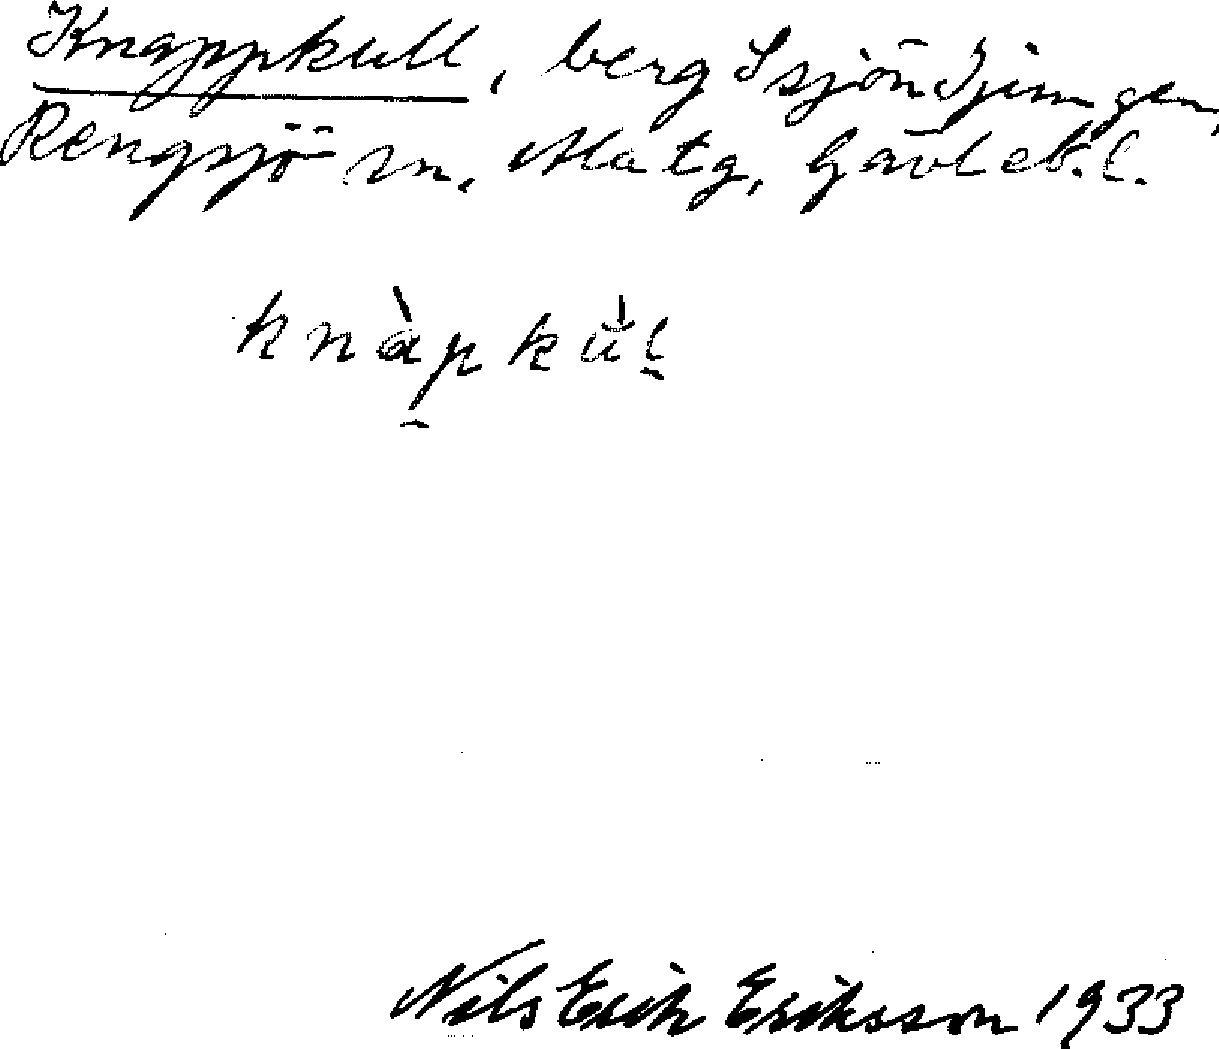 Knappkull, berg S sjön Tjimgen,
Rengsjö sn. Matg, Gävleb. l.
knàpkùl
Nils Erik Eriksson 1933